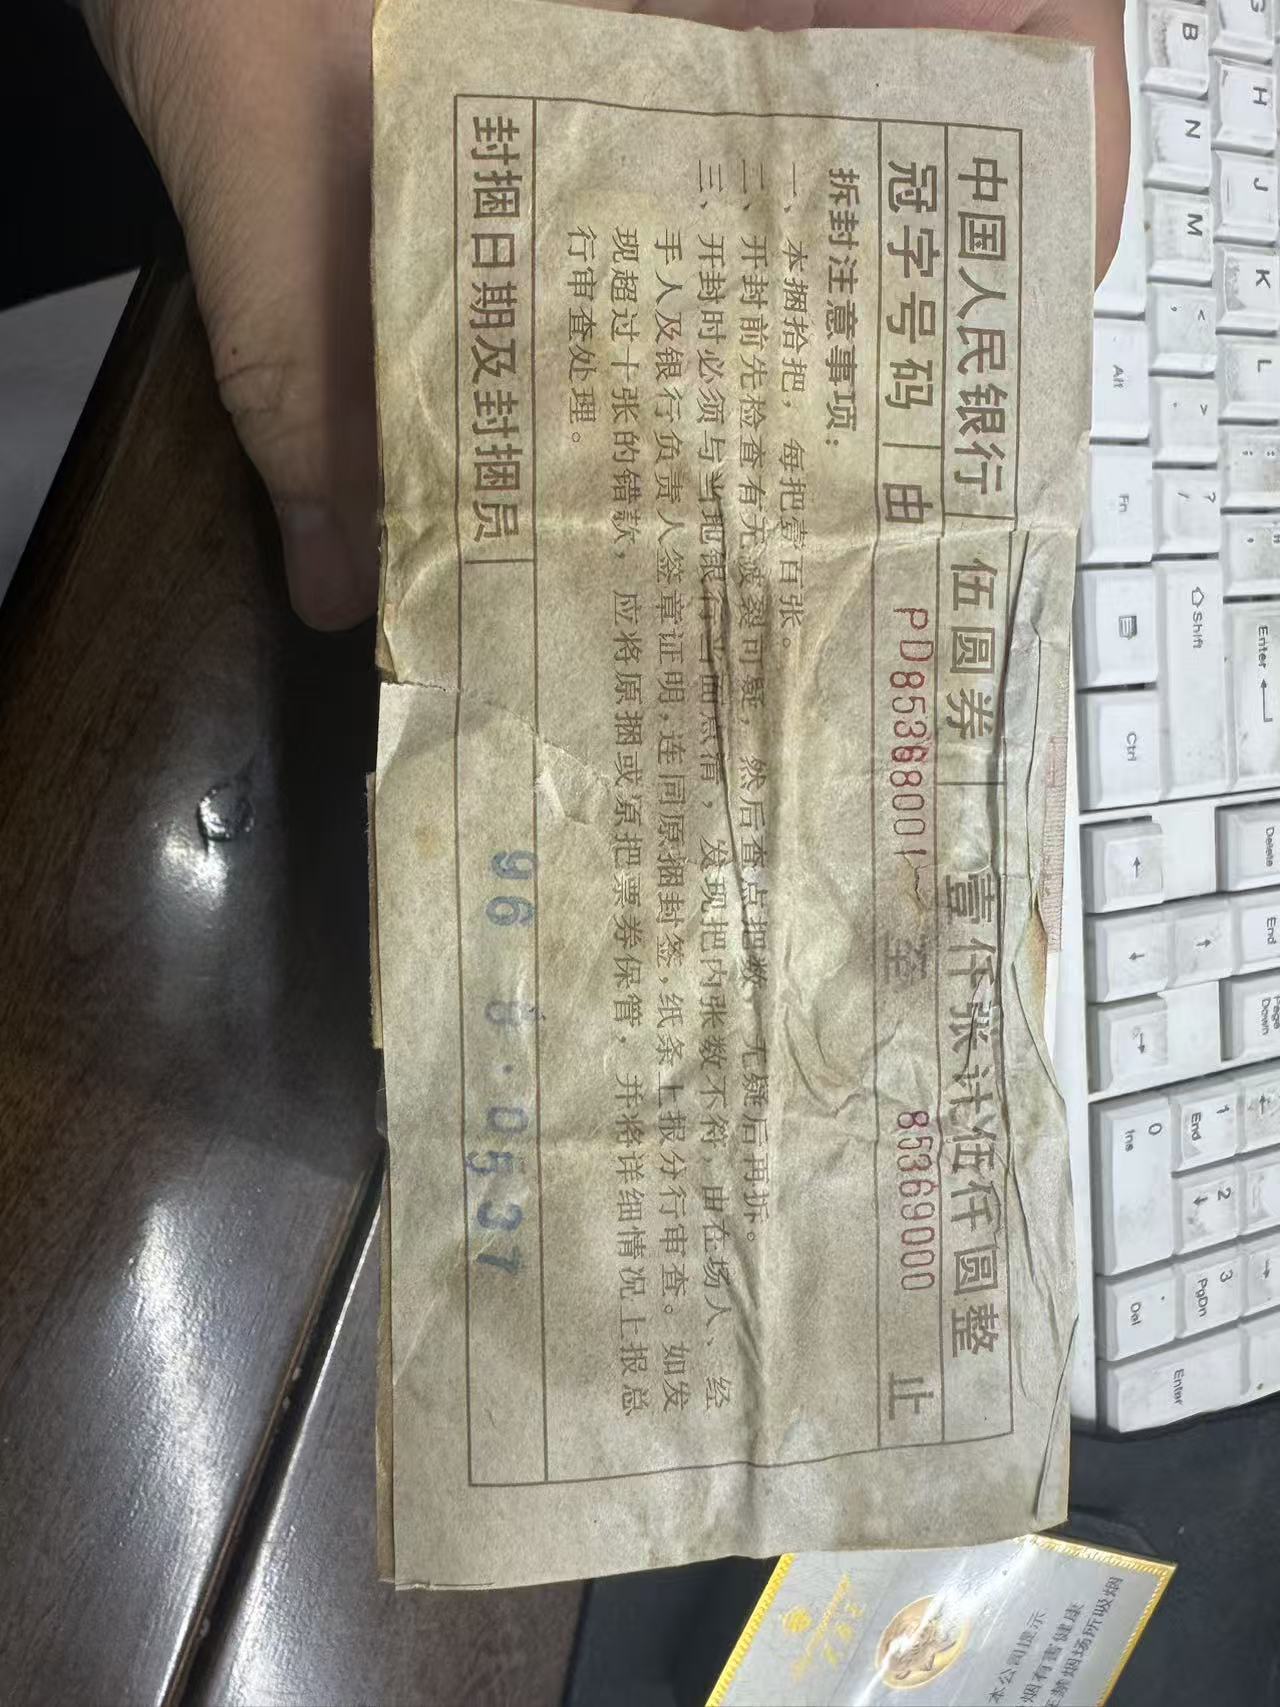 中国人民银行 伍圆券 壹仟张计伍仟圆整
冠字号码 由 PD85368001 至 85369000 止
拆封注意事项：
一、本捆拾把，每把壹百张。
二、开封前先检查有无破裂可疑，然后查点把数，无疑后再拆。
三、开封时必须与当地银行当面点清，发现把内张数不符，由在场人、经
手人及银行负责人签章证明，连同原捆封签，纸条上报分行审查。如发
现超过十张的错款，应将原捆或原把票券保管，并将详细情况上报总
行审查处理。
封捆日期及封捆员 96 8·0537
B
N
M
< ,
> .
? /
H
J
K
L
: ;
Alt
Fn
Ctrl
Shift
Enter
Delete
End
Page Down
0 Ins
1 End
2
3 PgDn
Del
Enter
本公司提示
吸烟有害健康
请勿在禁烟场所吸烟